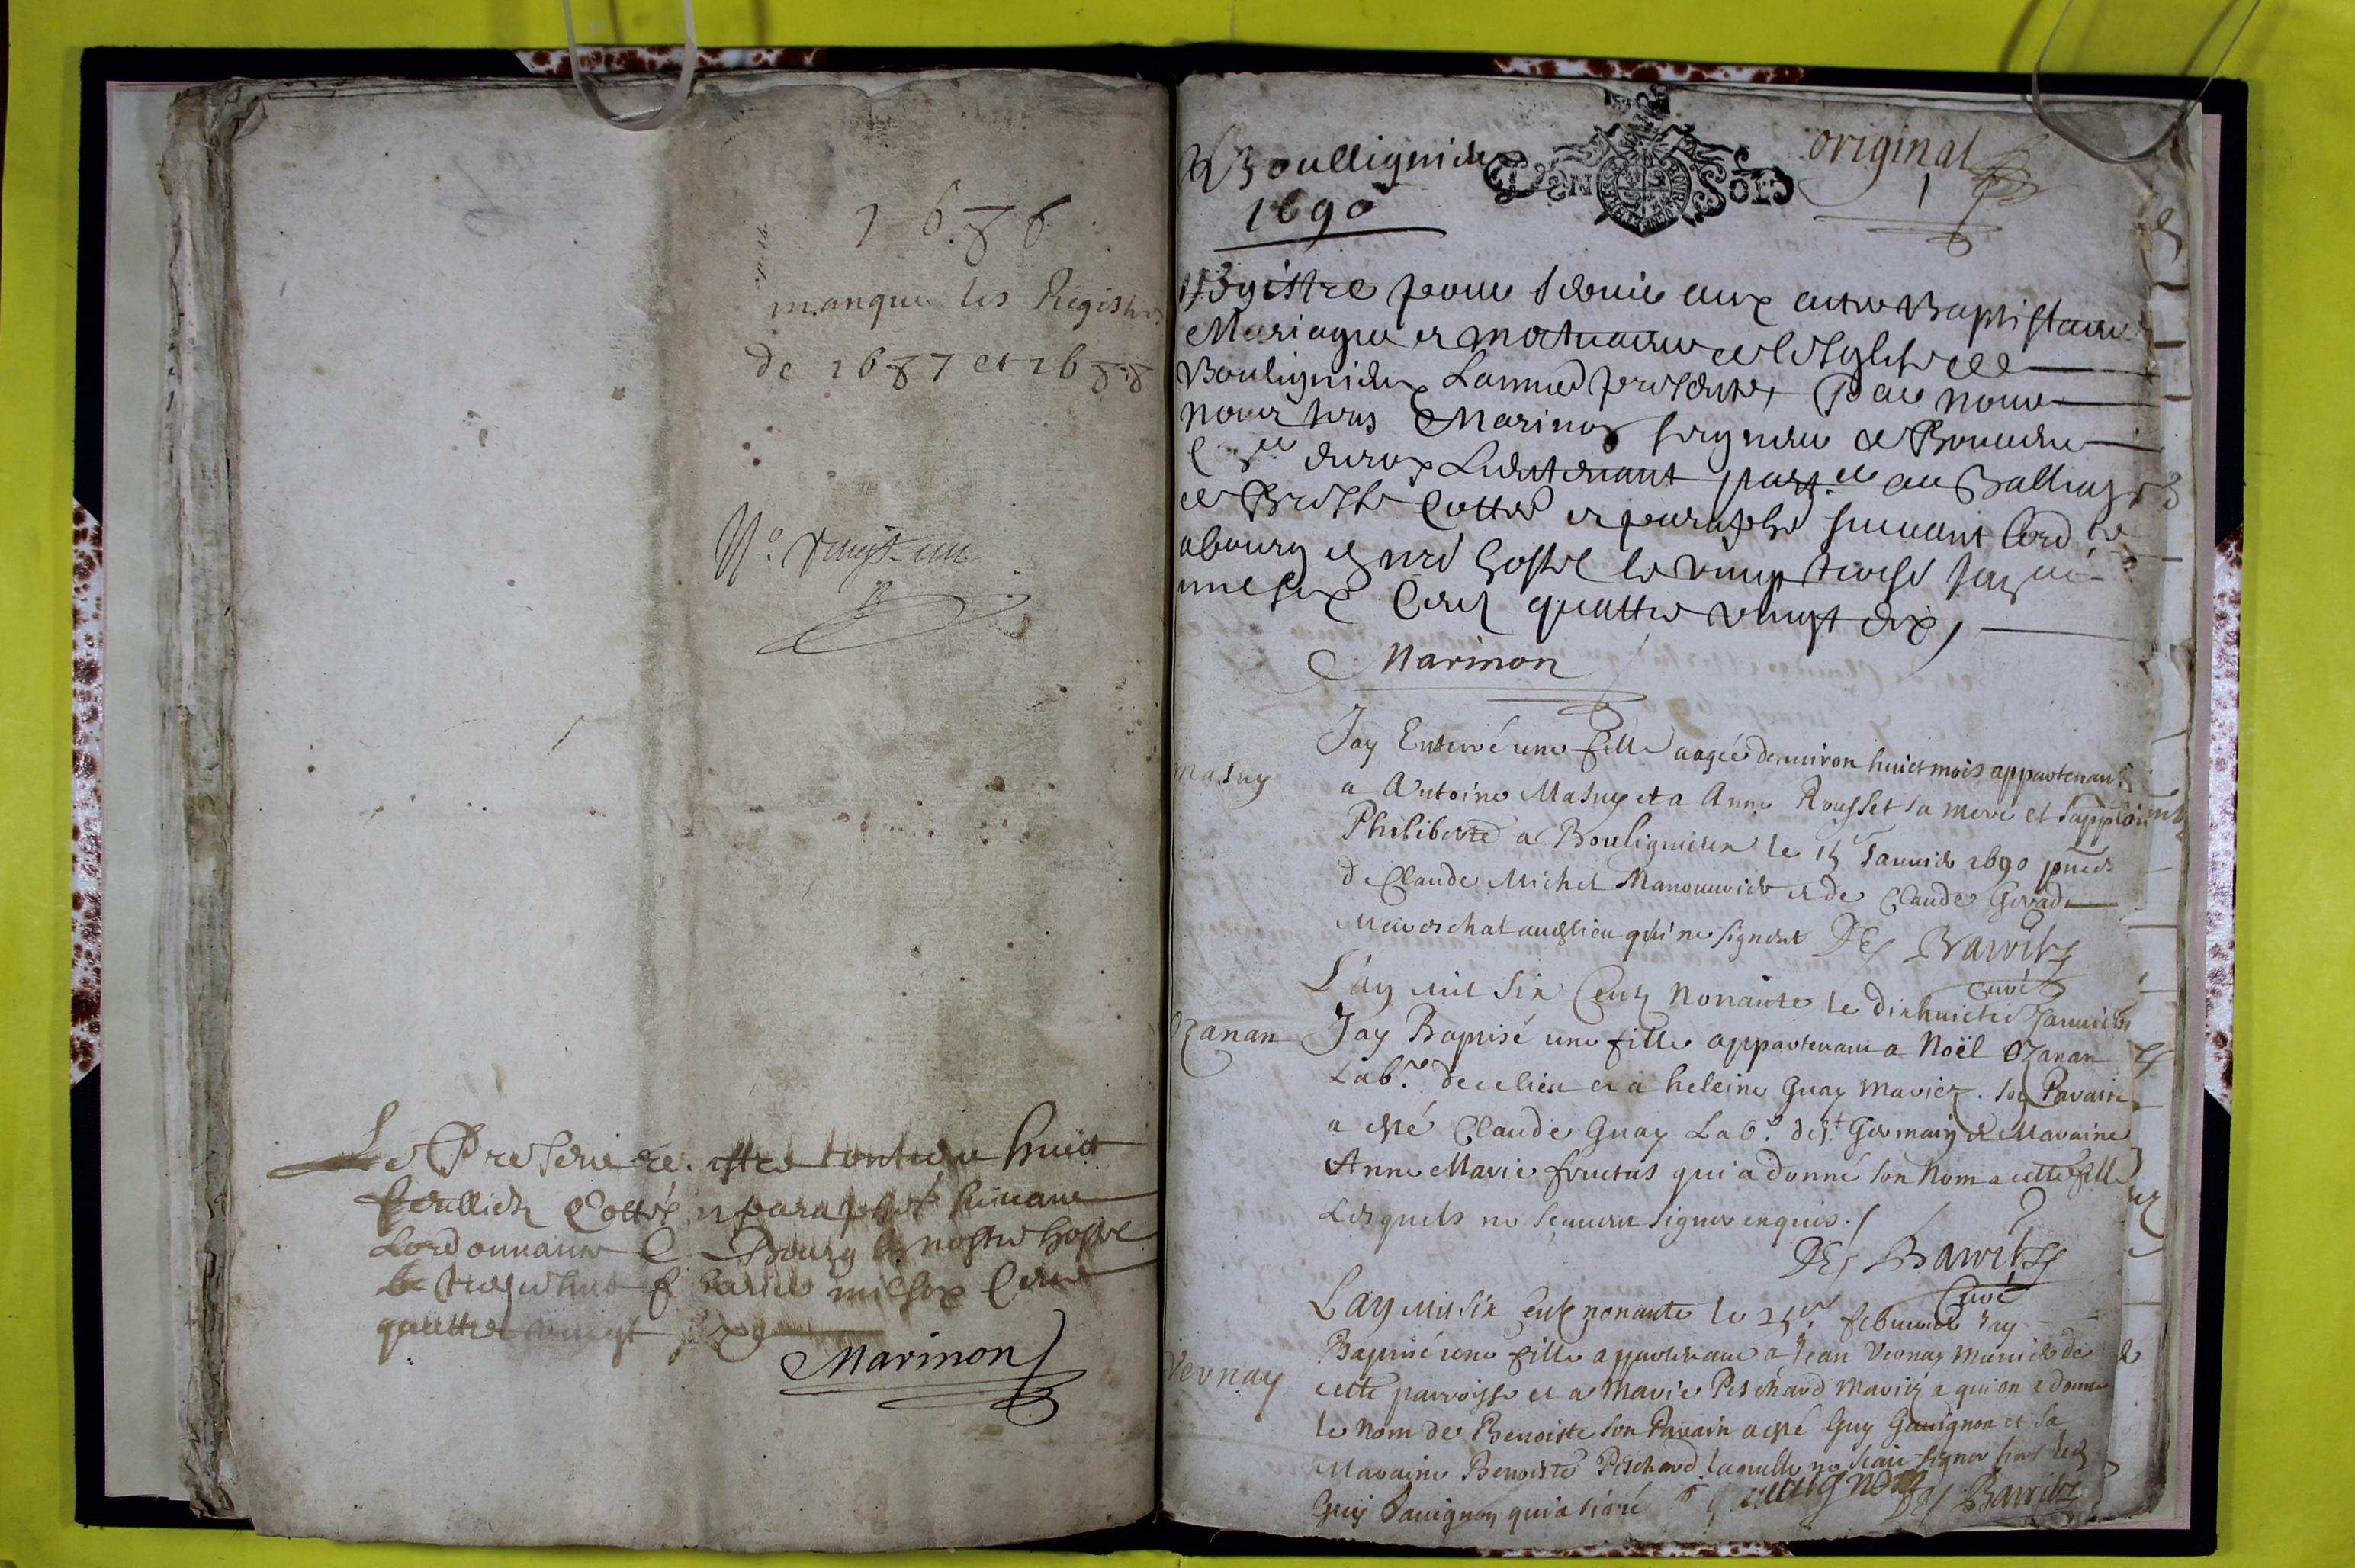 1686
manque les Registres
de 1687 et 1688
N.º vingt un
Le Present re istre contient huict
feulliets Cottés et paraphés suivant
Lordonnance A Bourg en nostre hostel
le mil six Cent
quattre vingt
Marinon
Boullignieu
1690
original
1
Registre pour servir aux actes Baptistaires
Mariages et mortuaires de lesglise de
Boulignieux Lannee presente, Par nous
Marinon seigneur de
Lieutenant part.er au Balliage
de Bresse Cotté et paraphé suivant lord.ce
a bourg en nre hostel le vingt
mil six Cens quattre vingt dix,
Marinon
Masuy
Jay Enterré une fille aagée denuiron huict mois appartenant
a Antoine Masuy et a Anne Rousset sa mere et sappelloit
Philiberte a Boulignieu le 15 Januier 1690 pnts
de Claude Michel Manouurier et de Claude Girad
Mareschal audt lieu qui ne signent DES BARRITZ
Curé
L'an mil six Cents Nonante le dixhuictie Januier
Ozanan
Jay Baptisé une fille appartenant a Noël Ozanan
Lab.r de ce lieu et a heleine Guay mariez. son Parain
a esté Claude Guay Lab.r de St Germain et Maraine
Anne Marie fructus qui a donné son Nom a cette fille
Lesquels ne sçauent signer enquis.
DES BARRITZ
Curé
L'an mil six Cents nonante le 25e. feburier Jay
Vernay
Baptisé une fille appartenant a Jean Vernay munier de
cette parroisse et a Marie Pischard mariez a qui on a donné
le nom de Benoiste son Parain a esté Guy Gauignon et sa
Maraine Benoiste Pischard laquelle ne sçait signer hors ledt
Guy Gauignon qui a signé G gauignon DES BARRITZ